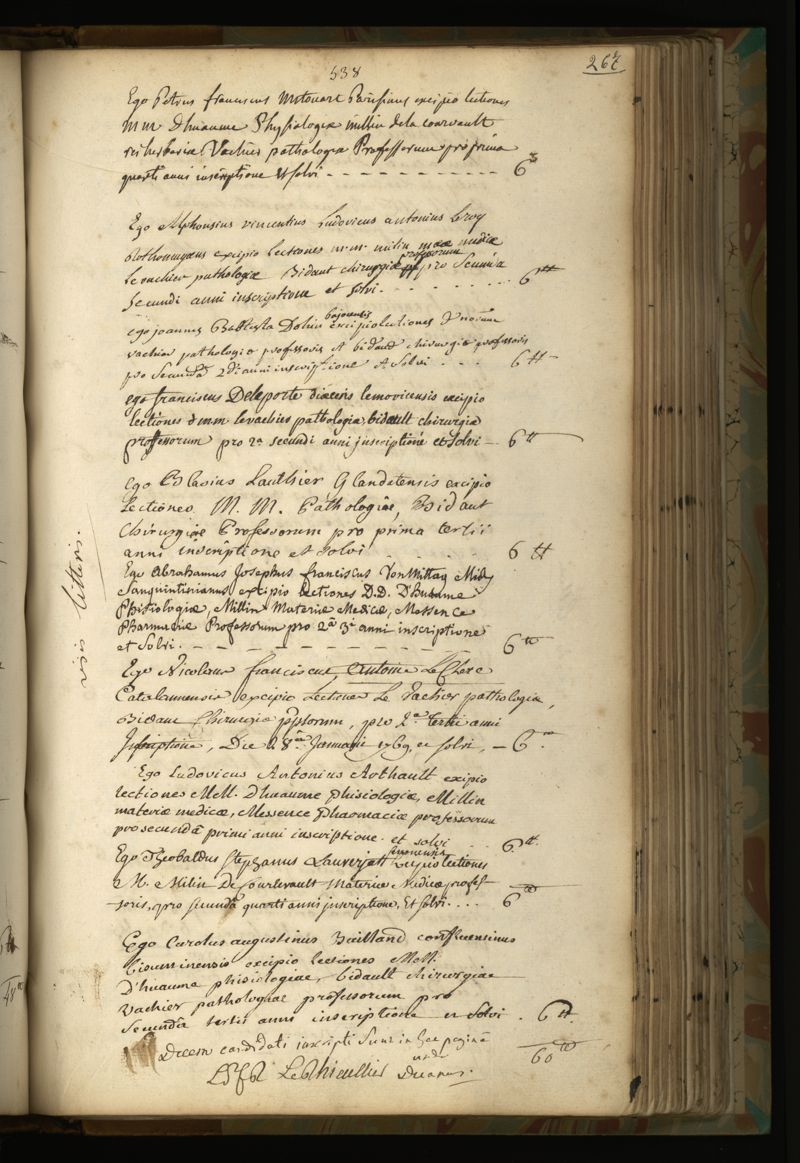 538
267
Ego Petrus franciscus Parisinus excipio lectiones
M M Dhuaume Physiologiæ millin dela courvault
rei herbariæ Vachier pathologiæ Professorum pro prima
quarti anni inscriptione et solvi - - - - - - - - - - - 6
Ego Alphonsius vincentius Ludovicus antonius leroy
Rothomagæus excipio lectiones m. m. millin mæ medicæ
le vachier pathologiæ Bidaut chirurgiæ professorum pro Secunda
Secundi anni inscriptione et solvi. - - - - - - - 6 tt
ego joannes Baptista Dohin bajocensis excipio lectiones D norum
vachier pathologiæ professoris et bidaud chirurgiæ professoris
pro Secunda 2di anni inscriptione et Solvi - - - - 6 tt
ego franciscus Deleporte diœcesis lemovicensis excipio
lectiones d mm levachier pathologiæ, bidault chirurgiæ
professorum pro 2a secundi anni inscriptione et solvi — 6 tt
Ego Blasius Lauthier Glandatensis excipio
Lectiones M. M. Pathologiæ, Bidaut
Chirurgiæ Professorum pro prima tertii
anni inscriptione et solvi . . . . . 6 tt
visis litteris.
Ego Abrahamus Josephus franciscus VonWittag
Sanquintinianus excipio lectiones D.D. D'huaume
Phisiologiæ, Millin Materiæ Medicæ, Messence
Pharmaciæ Professorum pro 2a 3i anni inscriptione
et Solvi. - - - - - - - - - - - 6 tt
Ego Nicolaus franciscus, antonius LeClerc
Catalaunensis excipio Lectiones Le Vachier pathologiæ,
Bidaut Chirurgiæ pssorum, pro 2a tertii anni
Inscriptione, Die 28a Januarii 1769, et solvi, — 6 tt
Ego Ludovicus Antonius Arthault excipio
lectiones MM. Dhuaume phisiologiæ, Millin
materiæ medicæ, Messence pharmaciæ professorum
pro secundâ primi anni inscriptione et solvi . . 6 tt
Ego Theobaldus Stephanus Lauverjatt excipio lectiones
M. Milin De Courtevault Materiæ Medicæ profes-
soris, pro secunda quarti anni inscriptione, Et solvi. . . . 6 tt
Ego Carolus augustinus Bailland confluentinus
bisuntinensis excipio lectiones MM.
D'huaume phisiologiæ, bidault chirurgiæ
Vachier pathologiæ professorum pro
Secundâ tertii anni inscriptione et solvi . 6 tt
Decem candidati inscripti sunt in hac paginâ 60 tt
LeThieullier Decanus.